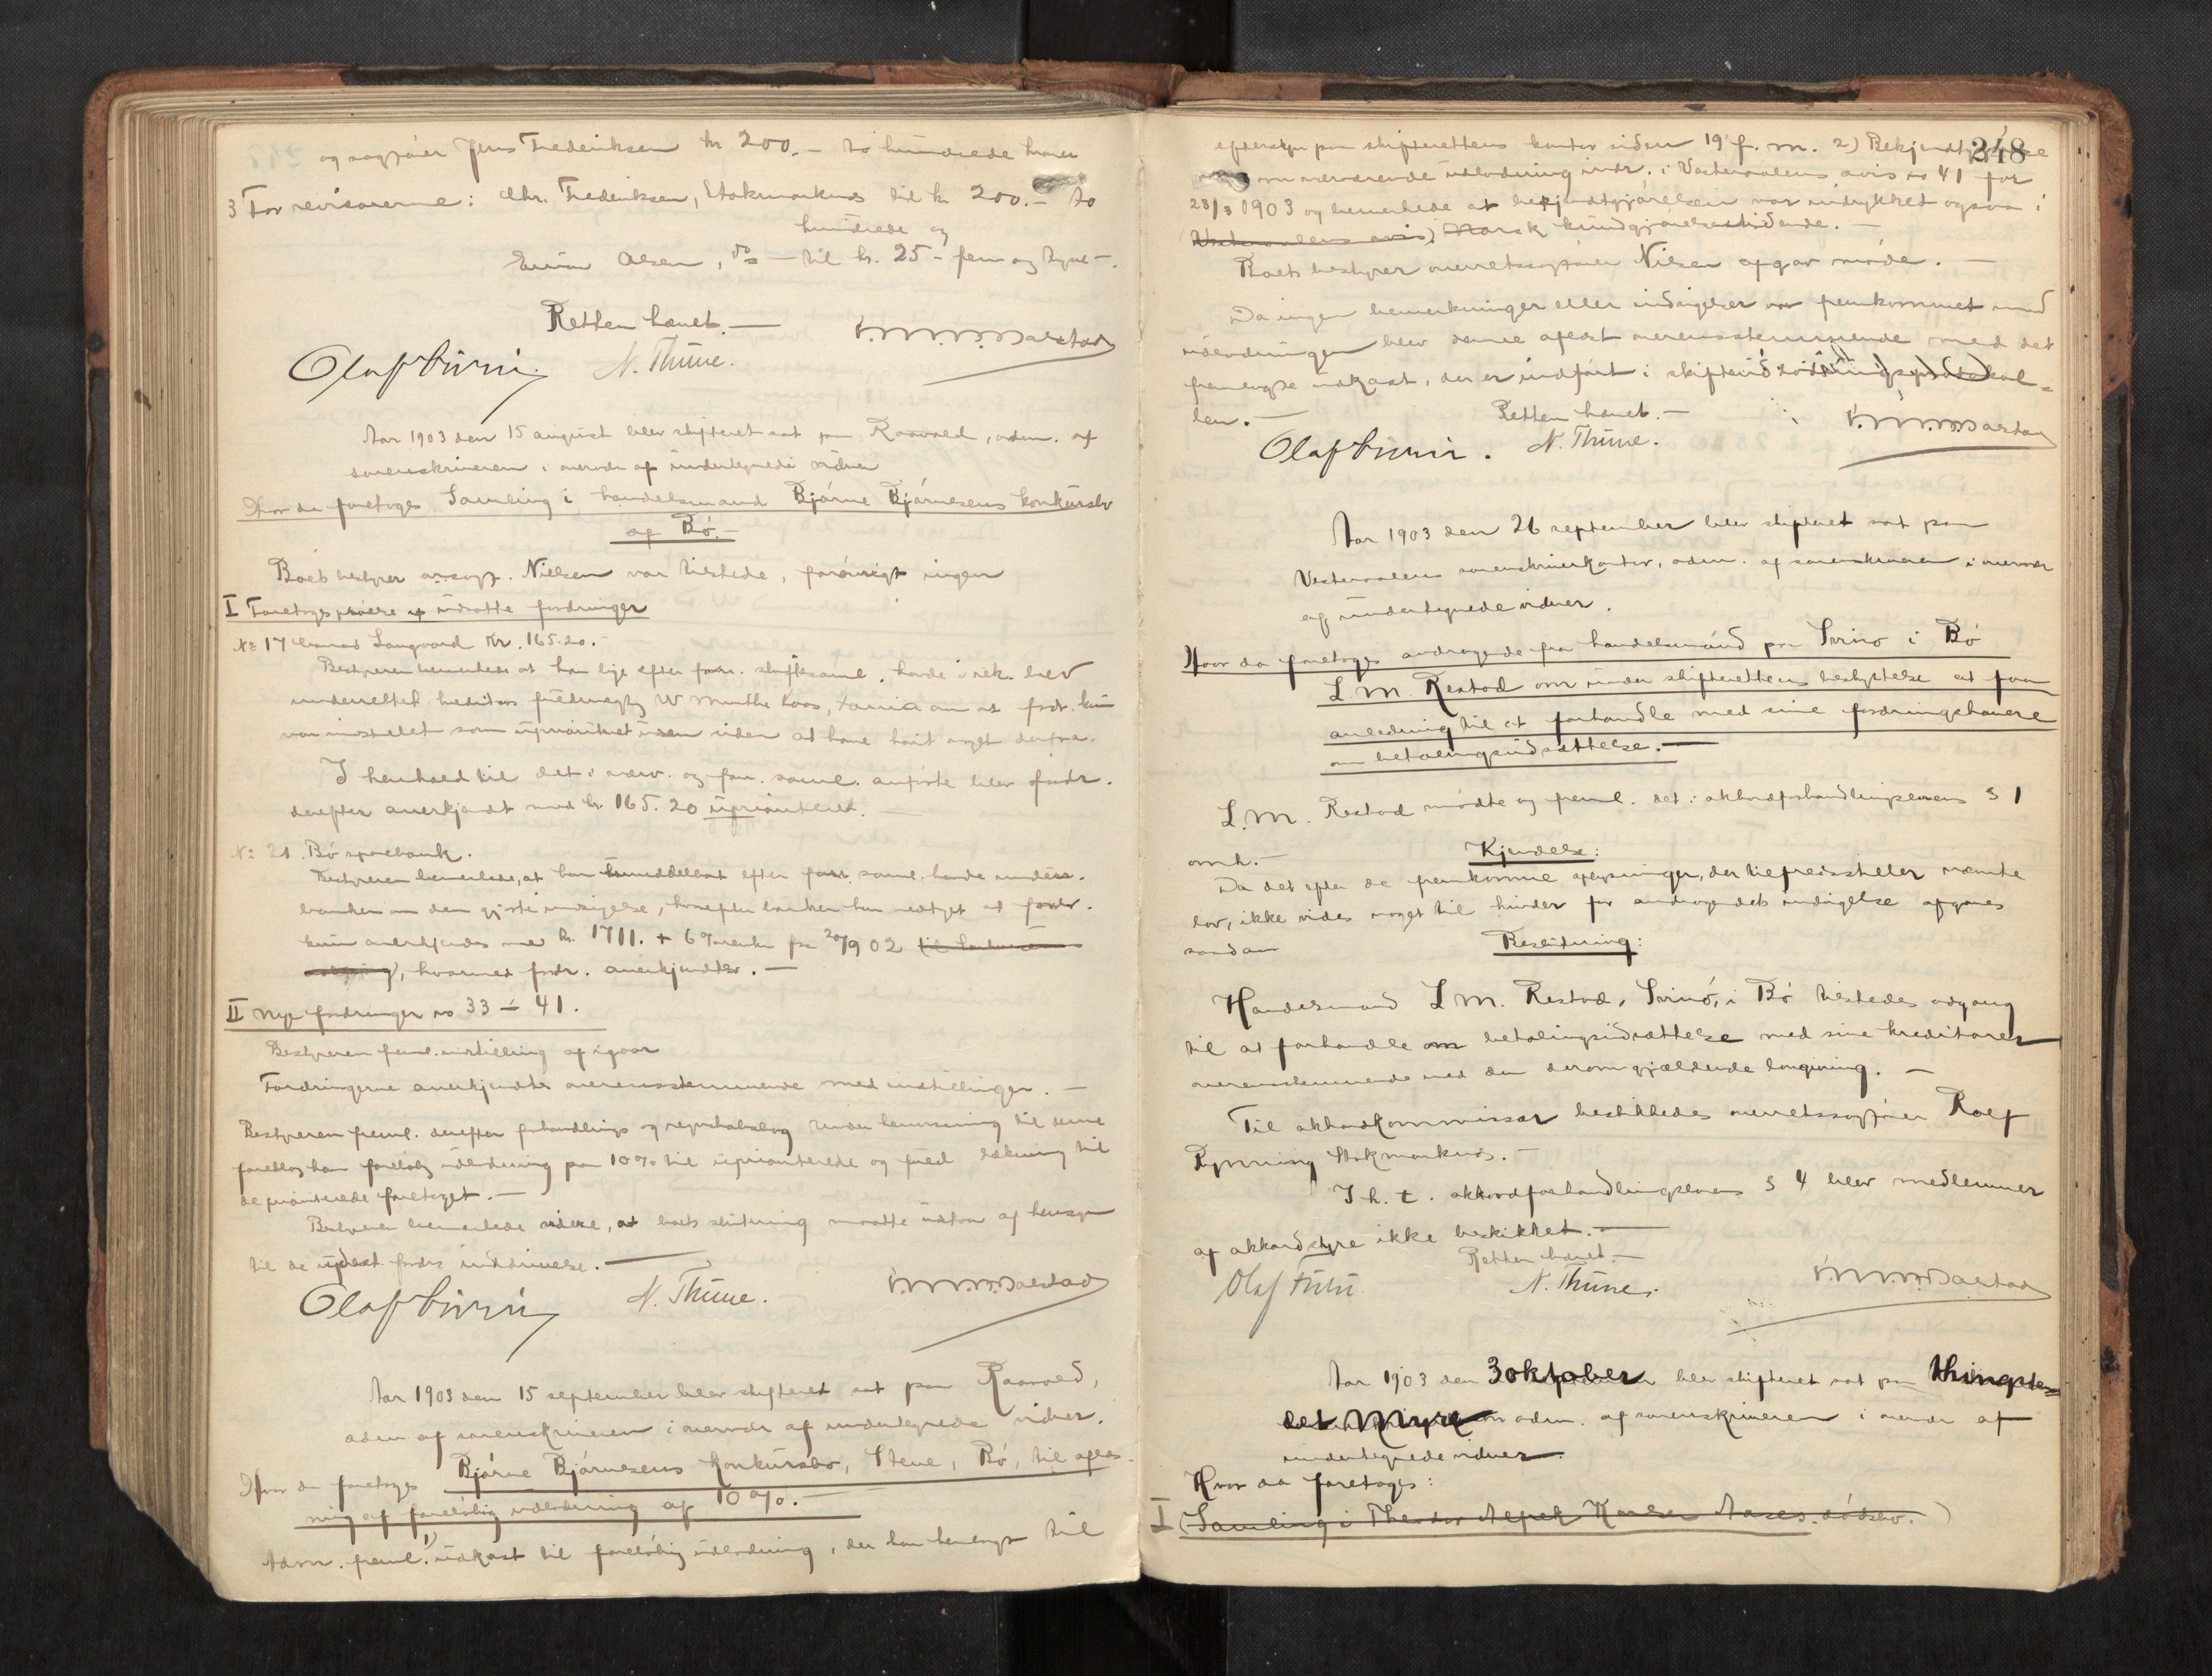 og sagfører Jens Frederiksen kr 200.- to hundrede kroner
3 For revisorerne: Chr. Frederiksen, Stokmarknes til kr 200.- to
hundrede og
Einar Olsen, do - til kr. 25 - fem og tyve -.
Retten hævet. -
Olaf N. Thune.
Aar 1903 den 15 august blev skifteret sat paa Raavold, adm. af
sorenskriveren i overvær af undertegnede vidner
Hvor da foretoges Samling i handelsmand Bjarne Bjarnesens konkursbo
af Bø. -
Boets bestyrer orsagf. Nielsen var tilstede, forøvrigt ingen
I Foretoges prøvelse af udsatte fordringer
No 17 Conrad Langaard Kr. 165.20. -
Bestyreren bemerkede at han lige efter forr. skiftesaml. havde i rek. brev
underrettet kreditors fuldmægtig W Munthe Kaas, om at fordr. kun
var indstillet som uprioritert uden siden at have hørt noget derfra.
I henhold til det i nærv. og forr. saml. anførte blev fordr.
derefter anerkjendt med kr. 165.20 uprioriteret. -
No 21. Bø sparebank.
Bestyreren bemerkede, at han umiddelbart efter forr. saml. havde underr.
banken om den gjorte indsigelse, hvorefter banken har vedtaget at fordr.
kun anerkjendes med kr. 1711. + 6% renter fra 20/9 02
, hvormed fordr. anerkjendtes. -
II Nye fordringer no 33 - 41.
Bestyreren freml. indstilling af igaar
Fordringerne anerkjendtes overensstemmende med indstillingen. -
Bestyreren freml. derefter forhandlings og regnskabsbog under henvisning til denne
foreslog han foreløbig udlodning paa 10% til uprioriterede og fuld dekning til
de prioriterede foretaget. -
Bestyreren bemerkede videre, at boets slutning maatte udstaa af hensyn
til de udest. fordrs inddrivelse. -
Olaf N. Thune.
Aar 1903 den 15 september blev skifteret sat paa Raavold,
adm af sorenskriveren i overvær af undertegnede vidner.
Hvor da foretoges Bjarne Bjarnesens konkursbo, Steine, Bø, til aflæs-
ning af foreløbig udlodning af 10%. -
Adm. freml. 1) udkast til foreløbig udlodning, der har henligget til
248
eftersyn paa skifterettens kontor siden 19 f. m. 2) Bekjendtgjørelse
om nærværende udlodning indr. i Vesteraalens avis no 41 for
28/8 1903 og bemerkede at bekjendtgjørelsen var indrykket ogsaa i
(Vesteraalens avis) Norsk kundgjørelsestidende. -
Boets bestyrer overretssagfører Nilsen afgav møde. -
Da ingen bemerkninger eller indsigelser var fremkommet mod
udlodningen blev denne aflæst overensstemmende med det
fremlagte udkast, der er indført i skifteudlodningsprotokol-
len. -
Retten hævet. -
Olaf . N. Thune.
Aar 1903 den 26 september blev skifteret sat paa
Vesteraalens sorenskriverkontor, adm. af sorenskriveren i overvær
af undertegnede vidner.
Hvor da foretoges andragende fra handelsmand paa Svinø i Bø
L M. Restad om under skifterettens bestyrelse at faa
anledning til at forhandle med sine fordringshavere
om betalingsudsættelse. -
L. M. Restad mødte og freml. det i akkordforhandlingslovens § 1
omh. -
Kjendelse:
Da det efter de fremkomne oplysninger, der tilfredsstiller nævnte
lov, ikke vides noget til hinder for andragendets indvilgelse afgaves
saadan
Beslutning:
Handelsmand L M. Restad, Svinø, i Bø tilstedes adgang
til at forhandle om betalingsudsættelse med sine kreditorer
overensstemmende med den derom gjældende lovgivning. -
Til akkordkommissær beskikkedes overretssagfører Rolf
Rynning Stokmarknes. -
I h. t. akkordforhandlingslovens § 4 blev medlemmer
af akkordstyre ikke beskikket. -
Retten hævet -
Olaf N. Thune.
Aar 1903 den 3 oktober blev skifteret sat paa thingste-
det Myre adm. af sorenskriveren i overvær af
undertegnede vidner.
Hvor da foretoges:
I (Samling i Theodor Alfred Karlsen Aases dødsbo.)